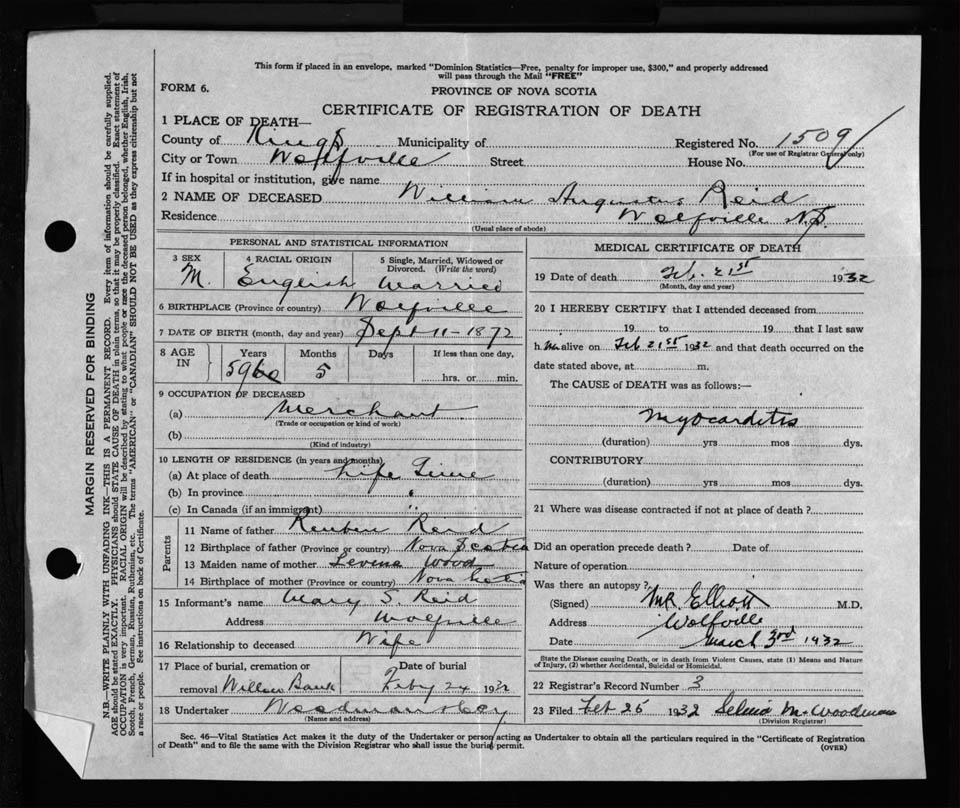 This form if placed in an envelope, marked "Dominion Statistics—Free, penalty for improper use, $300," and properly addressed
will pass through the Mail "FREE"
FORM 6.
PROVINCE OF NOVA SCOTIA
CERTIFICATE OF REGISTRATION OF DEATH
1 PLACE OF DEATH—
County of Kings Municipality of Registered No. 1509
(For use of Registrar General only)
City or Town Wolfville Street House No.
If in hospital or institution, give name
2 NAME OF DECEASED William Augustus Reid
Residence Wolfville N.S.
(Usual place of abode)
PERSONAL AND STATISTICAL INFORMATION
3 SEX 4 RACIAL ORIGIN 5 Single, Married, Widowed or
Divorced. (Write the word)
M. English Married
6 BIRTHPLACE (Province or country) Wolfville
7 DATE OF BIRTH (month, day and year) Sept 11-1872
8 AGE IN Years Months Days If less than one day,
59 60 5 hrs. or min.
9 OCCUPATION OF DECEASED
(a) Merchant
(Trade or occupation or kind of work)
(b)
(Kind of industry)
10 LENGTH OF RESIDENCE (in years and months)
(a) At place of death Life Time
(b) In province "
(c) In Canada (if an immigrant) "
Parents
11 Name of father Reuben Reid
12 Birthplace of father (Province or country) Nova Scotia
13 Maiden name of mother Levina Wood
14 Birthplace of mother (Province or country) Nova Scotia
15 Informant's name Mary S. Reid
Address Wolfville
16 Relationship to deceased Wife
17 Place of burial, cremation or Date of burial
removal Willow Bank Feby 24 1932
18 Undertaker Woodman
(Name and address)
MEDICAL CERTIFICATE OF DEATH
19 Date of death Feb. 21st 1932
(Month, day and year)
20 I HEREBY CERTIFY that I attended deceased from
19 to 19 that I last saw
h im alive on Feb 21st 1932 and that death occurred on the
date stated above, at m.
The CAUSE of DEATH was as follows:—
Myocarditis
(duration) yrs mos dys.
CONTRIBUTORY
(duration) yrs mos dys.
21 Where was disease contracted if not at place of death?
Did an operation precede death? Date of
Nature of operation
Was there an autopsy?
(Signed) M.R. Elliott M.D.
Address Wolfville
Date March 3rd 1932
State the Disease causing Death, or in death from Violent Causes, state (1) Means and Nature
of Injury, (2) whether Accidental, Suicidal or Homicidal.
22 Registrar's Record Number 3
23 Filed Feb 25 1932 Selma M. Woodman
(Division Registrar)
Sec. 46—Vital Statistics Act makes it the duty of the Undertaker or person acting as Undertaker to obtain all the particulars required in the "Certificate of Registration
of Death" and to file the same with the Division Registrar who shall issue the burial permit.
(OVER)
MARGIN RESERVED FOR BINDING
N.B.—WRITE PLAINLY WITH UNFADING INK—THIS IS A PERMANENT RECORD. Every item of information should be carefully supplied.
AGE should be stated EXACTLY. PHYSICIANS should STATE CAUSE OF DEATH in plain terms, so that it may be properly classified. Exact statement of
OCCUPATION is very important. RACIAL ORIGIN will be described by stating to what people or race the deceased person belonged, whether English, Irish,
Scotch, French, German, Russian, Ruthenian, etc. The terms "AMERICAN" or "CANADIAN" SHOULD NOT BE USED as they express citizenship but not
a race or people. See instructions on back of Certificate.